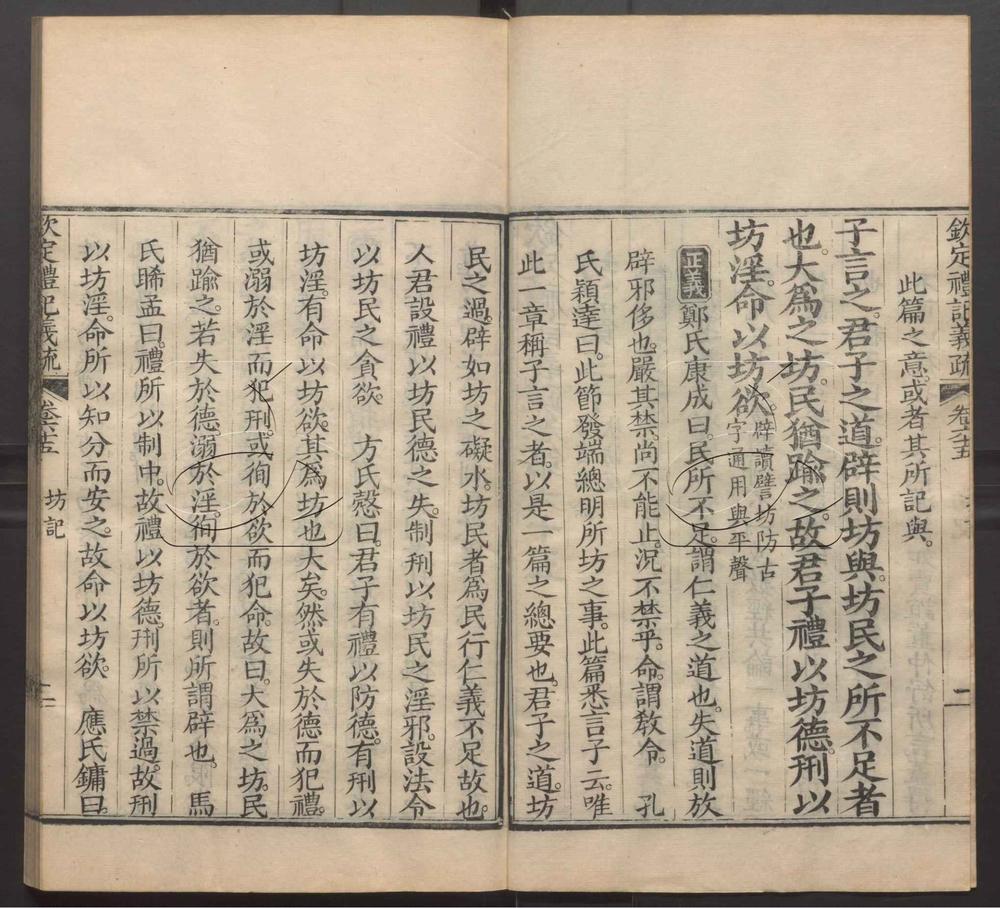 欽定禮記義疏 卷六十五 二
此篇之意。或者其所記與。
子言之。君子之道。辟則坊與。坊民之所不足者
也。大爲之坊。民猶踰之。故君子禮以坊德。刑以
坊淫。命以坊欲。辟讀譬坊防古
字通用與平聲
正義 鄭氏康成曰。民所不足。謂仁義之道也。失道則放
辟邪侈也。嚴其禁。尚不能止。況不禁乎。命。謂敎令。 孔
氏穎達曰。此節發端總明所坊之事。此篇悉言子云。唯
此一章稱子言之者。以是一篇之總要也。君子之道。坊
民之過。辟如坊之礙水。坊民者。爲民行仁義不足故也。
人君設禮以坊民德之失。制刑以坊民之淫邪。設法令
以坊民之貪欲。 方氏慤曰。君子有禮以防德。有刑以
坊淫。有命以坊欲。其爲坊也大矣。然或失於德而犯禮。
或溺於淫而犯刑。或徇於欲而犯命。故曰。大爲之坊。民
猶踰之。若失於德。溺於淫。徇於欲者。則所謂辟也。 馬
氏睎孟曰。禮所以制中。故禮以坊德。刑所以禁過。故刑
以坊淫。命所以知分而安之。故命以坊欲。 應氏鏞曰。
欽定禮記義疏 坊記